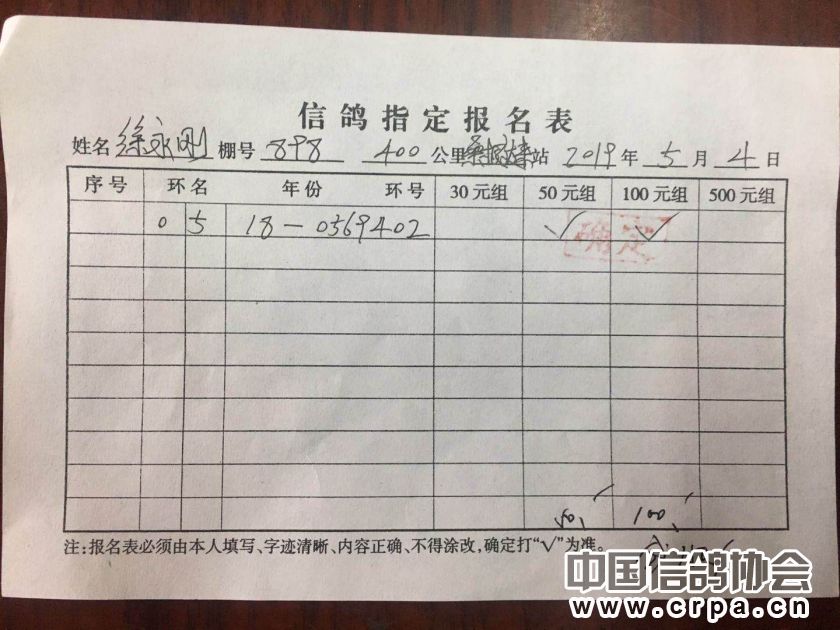 信鸽指定报名表
姓名 徐永刚 棚号 898 400 公里 站 2019 年 5 月 4 日
序号 环名 年份 环号 30元组 50元组 100元组 500元组
0 5 18-0569402 √ √
确定
50 100
注:报名表必须由本人填写、字迹清晰、内容正确、不得涂改,确定打“√”为准。
中国信鸽协会
www.crpa.cn